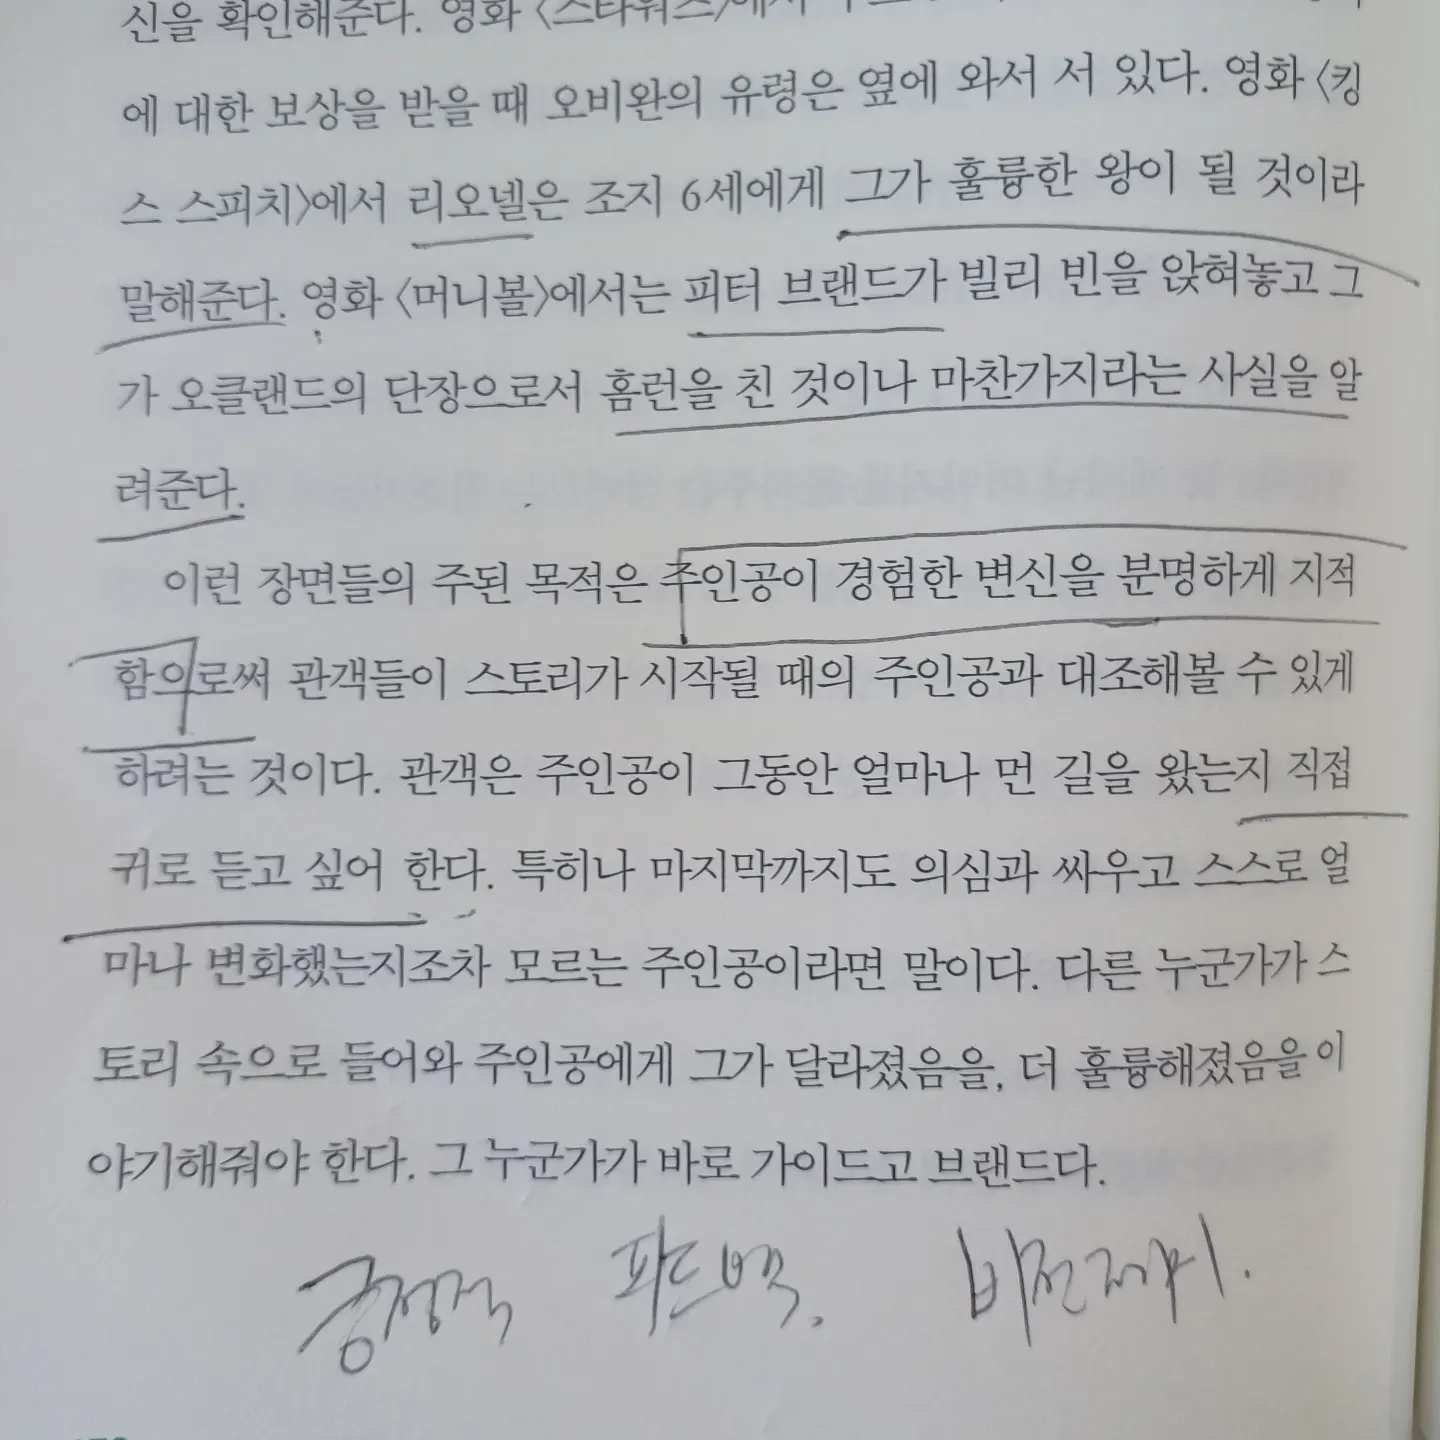 신을 확인해준다. 영화 〈스타워즈〉에서
에 대한 보상을 받을 때 오비완의 유령은 옆에 와서 서 있다. 영화 〈킹
스 스피치〉에서 리오넬은 조지 6세에게 그가 훌륭한 왕이 될 것이라
말해준다. 영화 〈머니볼〉에서는 피터 브랜드가 빌리 빈을 앉혀놓고 그
가 오클랜드의 단장으로서 홈런을 친 것이나 마찬가지라는 사실을 알
려준다.
이런 장면들의 주된 목적은 주인공이 경험한 변신을 분명하게 지적
함으로써 관객들이 스토리가 시작될 때의 주인공과 대조해볼 수 있게
하려는 것이다. 관객은 주인공이 그동안 얼마나 먼 길을 왔는지 직접
귀로 듣고 싶어 한다. 특히나 마지막까지도 의심과 싸우고 스스로 얼
마나 변화했는지조차 모르는 주인공이라면 말이다. 다른 누군가가 스
토리 속으로 들어와 주인공에게 그가 달라졌음을, 더 훌륭해졌음을 이
야기해줘야 한다. 그 누군가가 바로 가이드고 브랜드다.
긍정적 피드백, 비전제시.